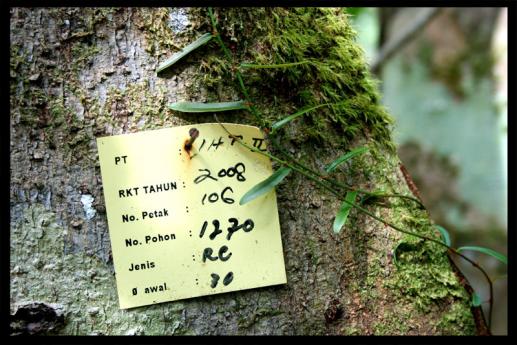 PT : IHT II
RKT TAHUN : 2008
No. Petak : 106
No. Pohon : 1270
Jenis : RC
Ø awal : 70